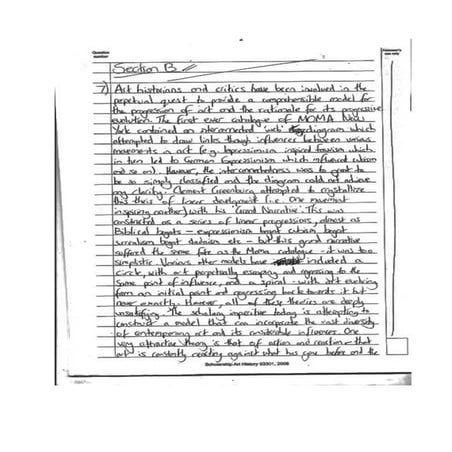 Question number
Assessor's use only
Section B
7) Art historians and critics have been involved in the
perpetual quest to provide a comprehensible model for
the progression of art and the rationale for its progressive
evolution. The first ever catalogue of MOMA New
York contained an interconnected 'web' diagram which
attempted to draw links though influences between various
movements in art (e.g. Impressionism inspired fauvism which
in turn led to German Expressionism which influenced cubism
and so on). However, the interconnectedness was to great to
be so simply classified and the diagram could not achieve
any clarity. Clement Greenburg attempted to crystallize
this thesis of linear development (i.e. One movement
inspiring another) with his 'Grand Narrative'. This was
constructed as a series of linear progressions, almost as
Biblical begats – expressionism begat cubism begat
surrealism begat dadaism etc – but this grand narrative
suffered the same fate as the Moma catalogue – it was too
simplistic. Various other models have included a
circle, with art perpetually escaping and regressing to the
same point of influence, and a spiral – with art evolving
from an initial point and regressing back towards it but
never exactly. However, all of these theories are deeply
unsatisfying. The scholarly imperative today is attempting to
construct a model that can incorporate the vast diversity
of contemporary art and its considerable influences. One
very attractive theory is that of action and reaction – that
art is constantly reacting against what has gone before and the
Scholarship Art History 93301, 2006